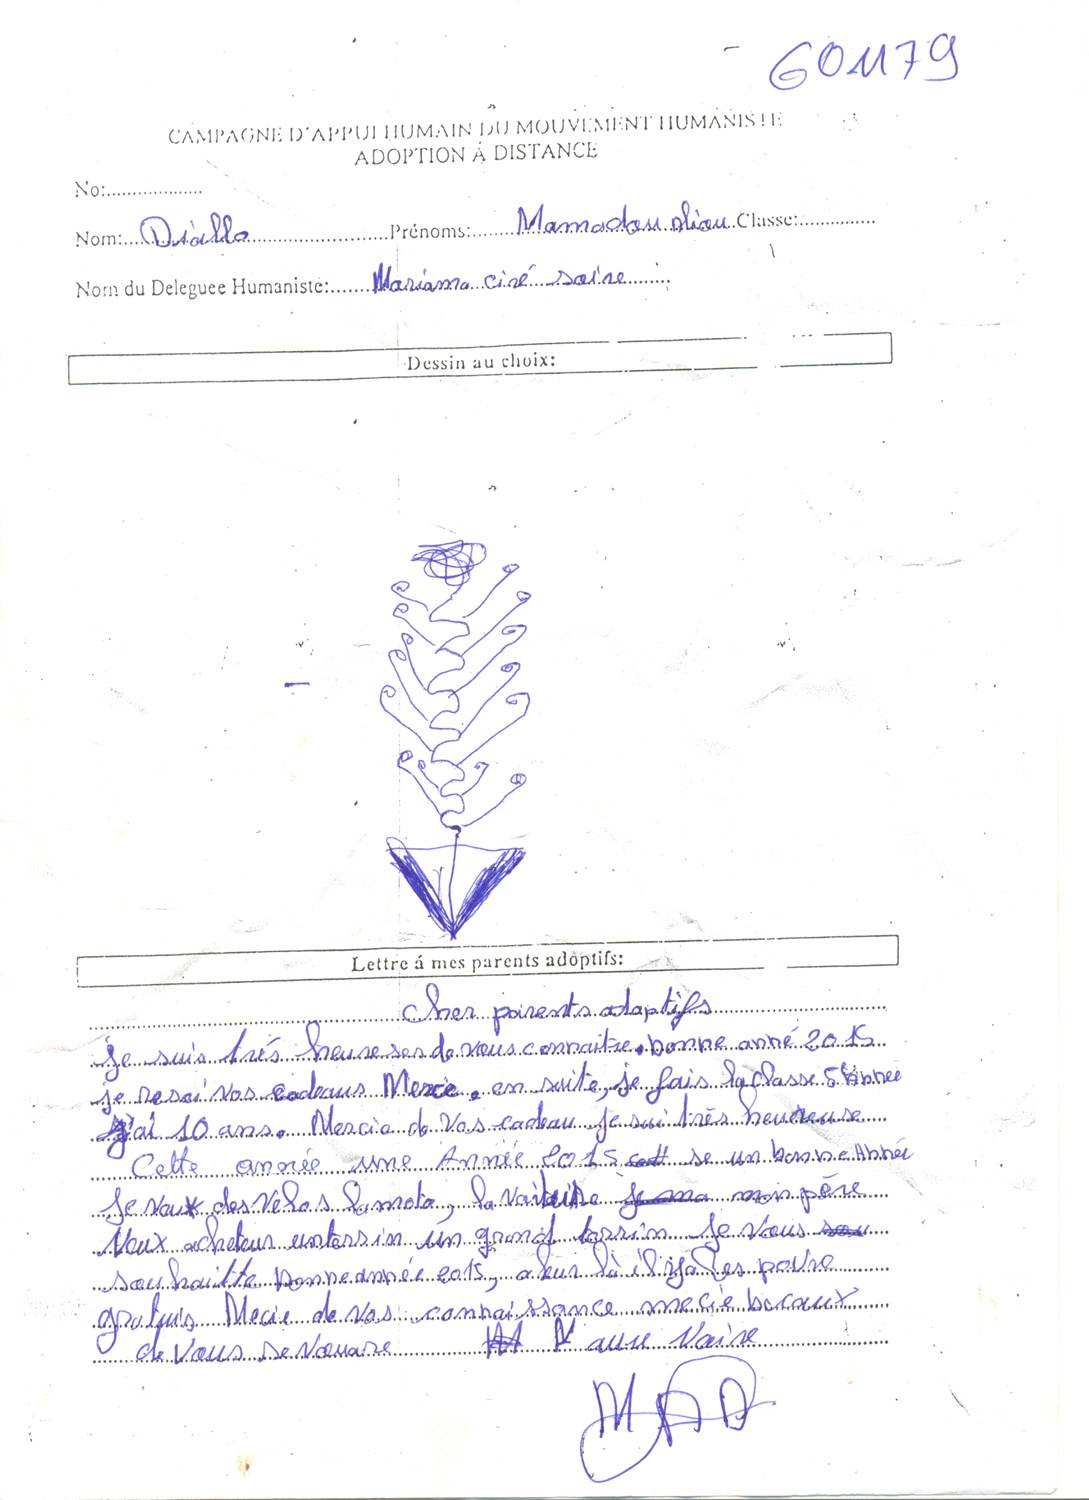 601179
CAMPAGNE D'APPUI HUMAIN DU MOUVEMENT HUMANISTE
ADOPTION Á DISTANCE
No:...................
Nom:....Diallo........................Prénoms:........Mamadou aliou.Classe:..............
Nom du Deleguee Humaniste:.......Mariama..ciré..saire........
Dessin au choix:
Lettre á mes parents adoptifs:
cher parents adaptifs
je suis trés heuse ses de vous connaitre. bonne anné 2015
je resai vos cadeaus Mercie. en suite, je fais la classe 5è Année
j'ai 10 ans. Mercie de vos cadeau je sui très heureuse
Cette année une Année 2015 se un bonne Anneé
je veux des vélos la moto, la voiture mon père
veux acheteur un terrin un grand terrin je vous
souhaitte bonne année 2015, a leur là il ya les povre
Mecie de vos connaissance mecie bocaux
de vous se vouare au re vaire